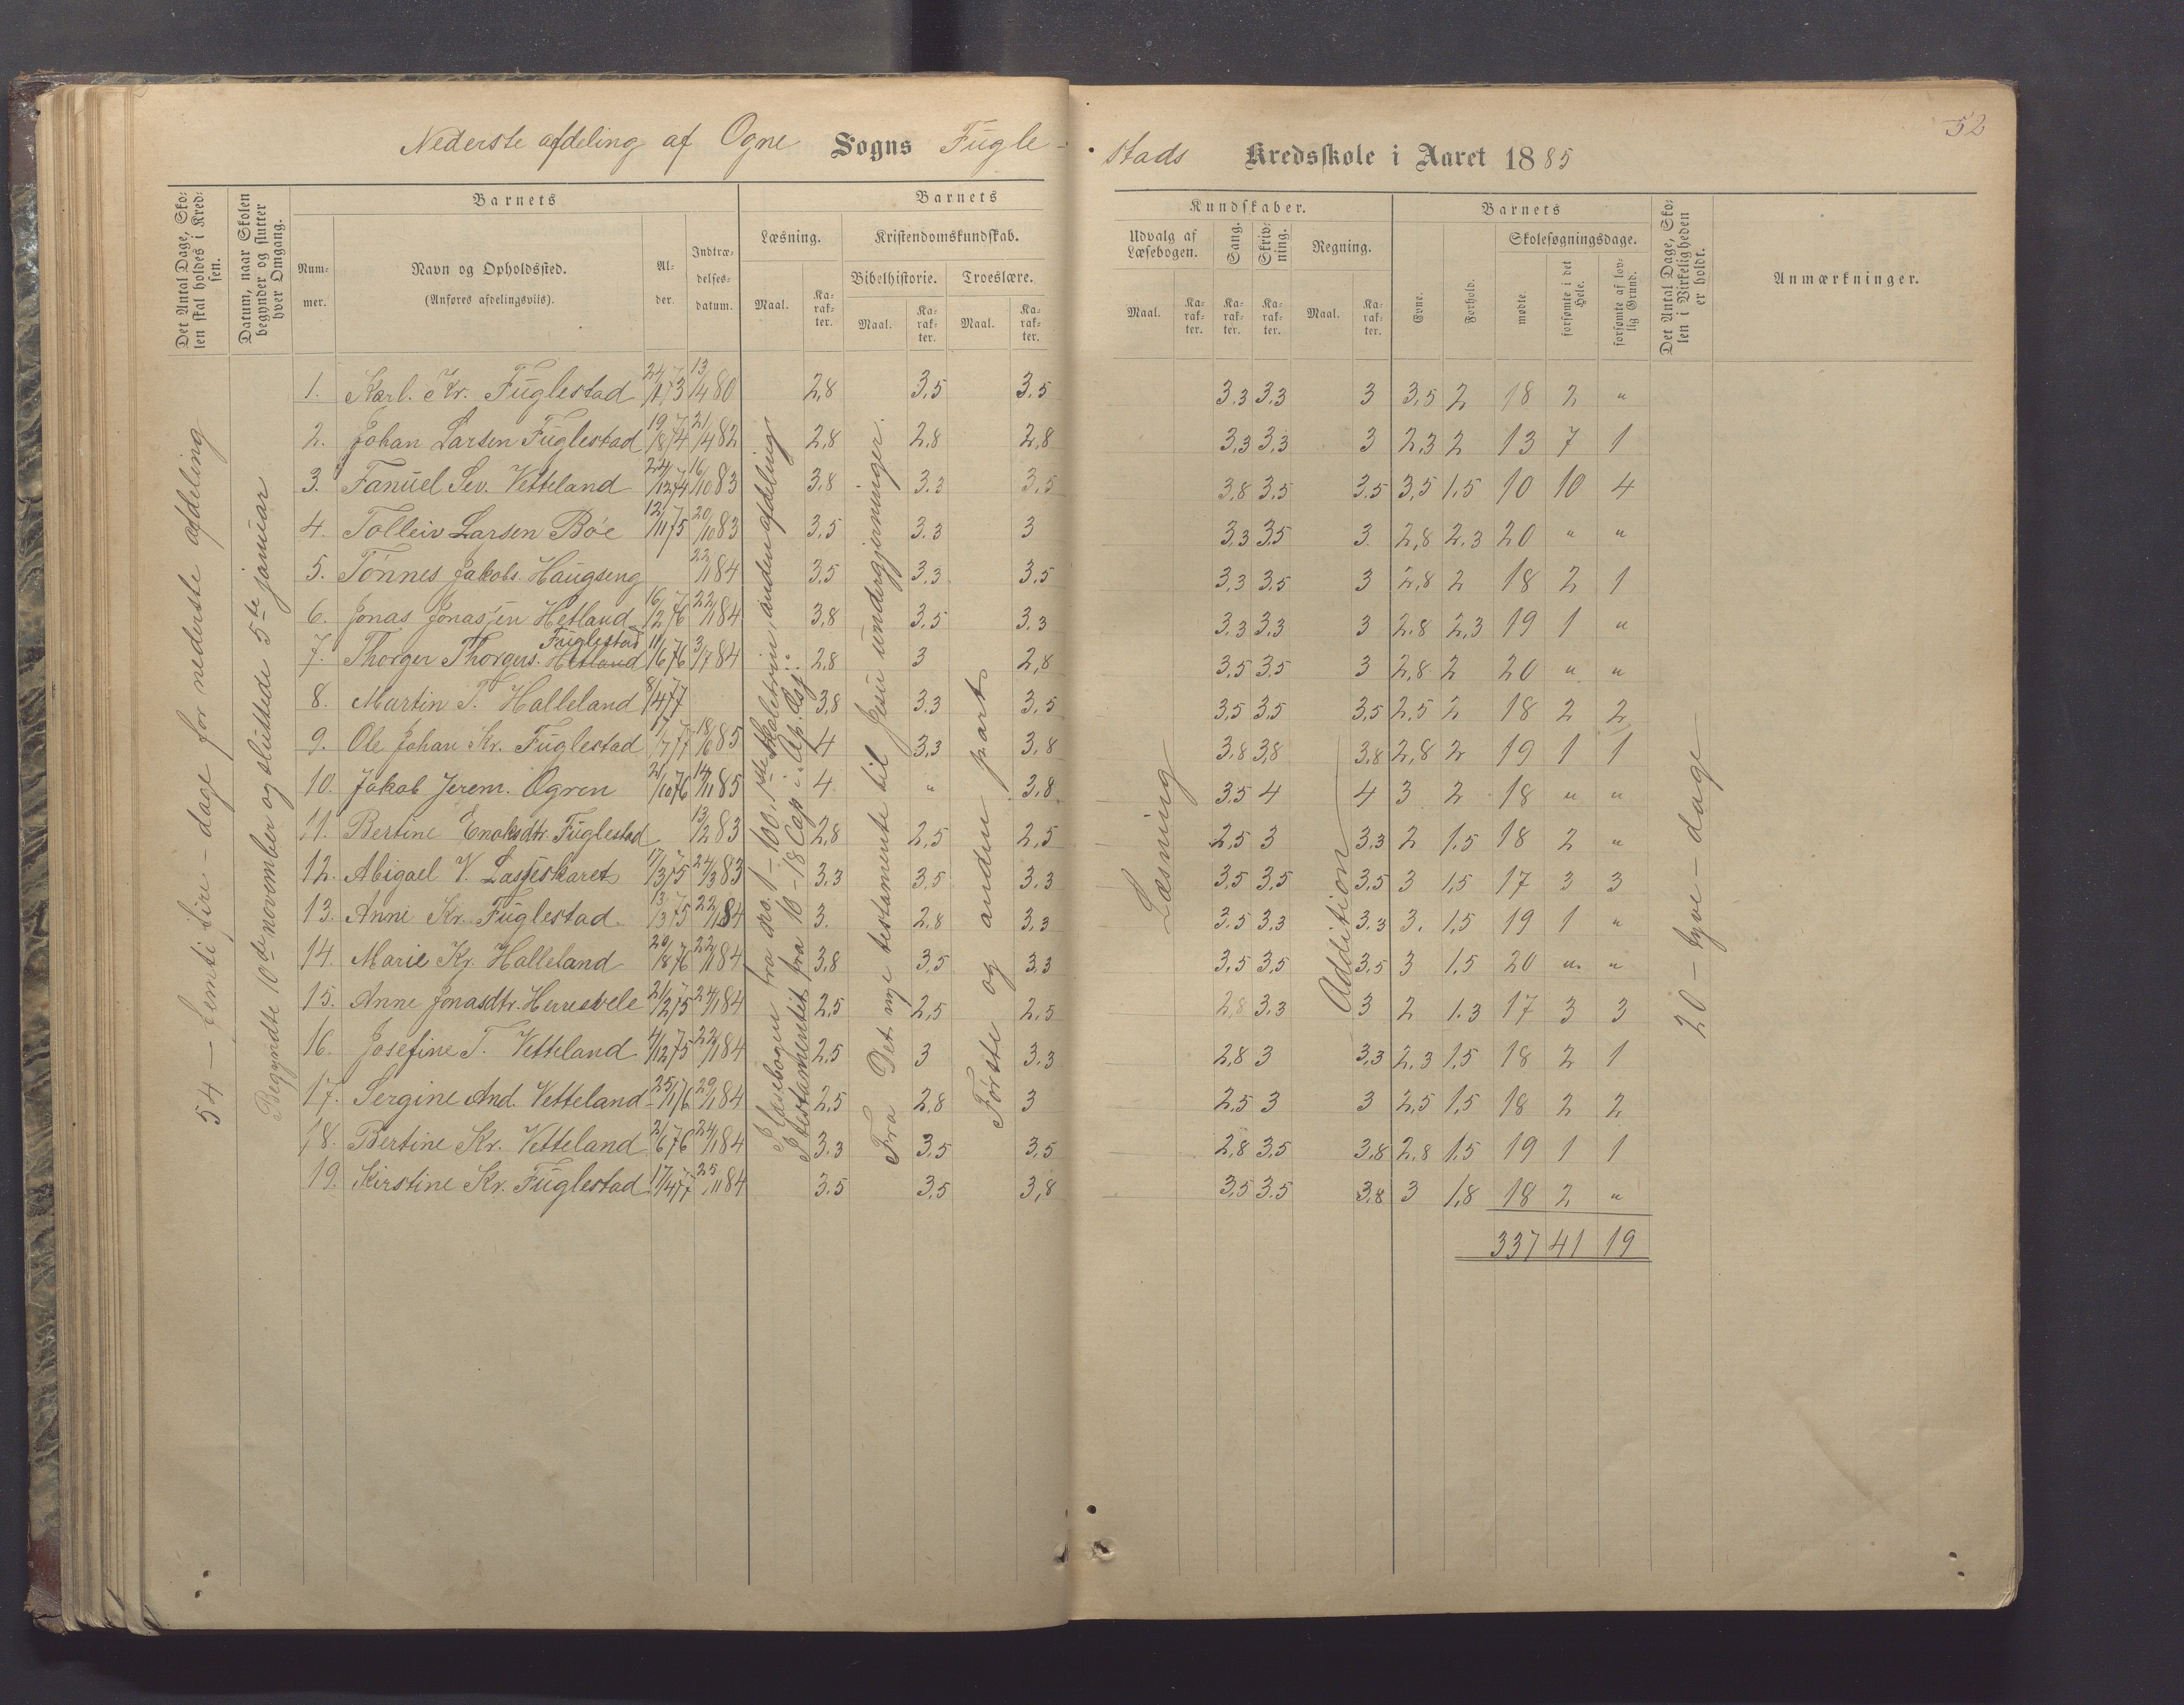 52
Nederste afdeling af Ogne Sogns Fugle-
stads Kredsskole i Aaret 1885
Det Antal Dage, Sko-
len skal holdes i Kred-
sen.
Datum, naar Skolen
begynder og slutter
hver Omgang.
Barnets
Num-
mer.
Navn og Opholdssted.
(Anføres afdelingsvis).
Al-
der.
Indtræ-
delses-
datum.
Barnets
Læsning.
Maal.
Ka-
rak-
ter.
Kristendomskundskab.
Bibelhistorie.
Maal.
Ka-
rak-
ter.
Troeslære.
Maal.
Ka-
rak-
ter.
Kundskaber.
Udvalg af
Læsebogen.
Maal.
Ka-
rak-
ter.
Sang.
Ka-
rak-
ter.
Skriv-
ning.
Ka-
rak-
ter.
Regning.
Maal.
Ka-
rak-
ter.
Barnets
Evne.
Forhold.
Skolesøgningsdage.
mødte.
forsømte i det
Hele.
forsømte af lov-
lig Grund.
Det Antal Dage, Sko-
len i Virkeligheden
er holdt.
Anmærkninger.
54 – femti fire – dage for nederste afdeling
Begyndte 10de november og sluttede 5te januar
I Læsebogen fra No. 1–100, 1ste skoletrin, anden afdeling
I testamentet fra 10–18 Cap i Ap. Gj.
Fra Det nye testamente til Jesu undergjerninger.
Første og anden part
Læsning
Addition
20 – tyve – dage
1. Karl. Kr. Fuglestad 24/1 73 13/4 80 2,8 3,5 3.5 3.3 3.3 3 3,5 2 18 2 "
2. Johan Larsen Fuglestad 19/8 74 21/4 82 2,8 2,8 2,8 3,3 3,3 3 2,3 2 13 7 1
3. Fanuel Sev. Vetteland 24/12 74 16/10 83 3.8 3.3 3,5 3,8 3,5 3.5 3,5 1.5 10 10 4
4. Tolleiv Larsen Bøe 12/11 75 20/10 83 3,5 3.3 3 3.3 3.5 3 2,8 2.3 20 " "
5. Tønnes Jakobs. Haugseng 22/1 84 3,5 3,3 3.5 3,3 3,5 3 2,8 2 18 2 1
6. Jonas Jonassen Hetland 16/2 76 22/1 84 3,8 3,5 3.3 3.3 3.3 3 2.8 2,3 19 1 "
7. Thorger Thorgers. Hetland Fuglestad 11/6 76 3/7 84 2,8 3 2,8 3,5 3,5 3 2,8 2 20 " "
8. Martin T. Halleland 8/4 77 3,8 3.3 3,5 3,5 3,5 3,5 2,5 2 18 2 2
9. Ole Johan Kr. Fuglestad 17/7 77 18/6 85 4 3,3 3,8 3,8 3,8 3,8 2,8 2 19 1 1
10. Jakob Jerem. Ogren 2/10 76 14/11 85 4 " 3,8 3,5 4 4 3 2 18 " "
11. Bertine Enoksdtr. Fuglestad 13/2 83 2,8 2,5 2,5 2,5 3 3.3 2 1.5 18 2 "
12. Abigael V. 17/3 75 24/3 83 3,3 3,5 3.3 3,5 3,5 3,5 3 1,5 17 3 3
13. Anne Kr. Fuglestad 13/3 75 22/1 84 3. 2,8 3,3 3.5 3.3 3.3 3. 1,5 19 1 "
14. Marie Kr. Halleland 20/8 76 22/1 84 3,8 3,5 3,3 3,5 3,5 3,5 3 1.5 20 " "
15. Anne Jonasdtr. Herresvele 21/2 75 24/1 84 2,5 2,5 2.5 2,8 3.3 3 2 1.3 17 3 3
16. Josefine T. Vetteland 4/12 75 22/1 84 2,5 3 3.3 2,8 3 3,3 2.3 1.5 18 2 1
17. Sergine And. Vetteland 25/1 76 29/1 84 2,5 2,8 3 2,5 3 3 2,5 1.5 18 2 2
18. Bertine Kr. Vetteland 2/6 76 24/1 84 3,3 3,5 3,5 2,8 3,5 3,8 2.8 1.5 19 1 1
19. Kirstine Kr. Fuglestad 17/4 77 25/11 84 3.5 3,5 3,8 3,5 3.5 3.8 3 1,8 18 2 "
337 41 19